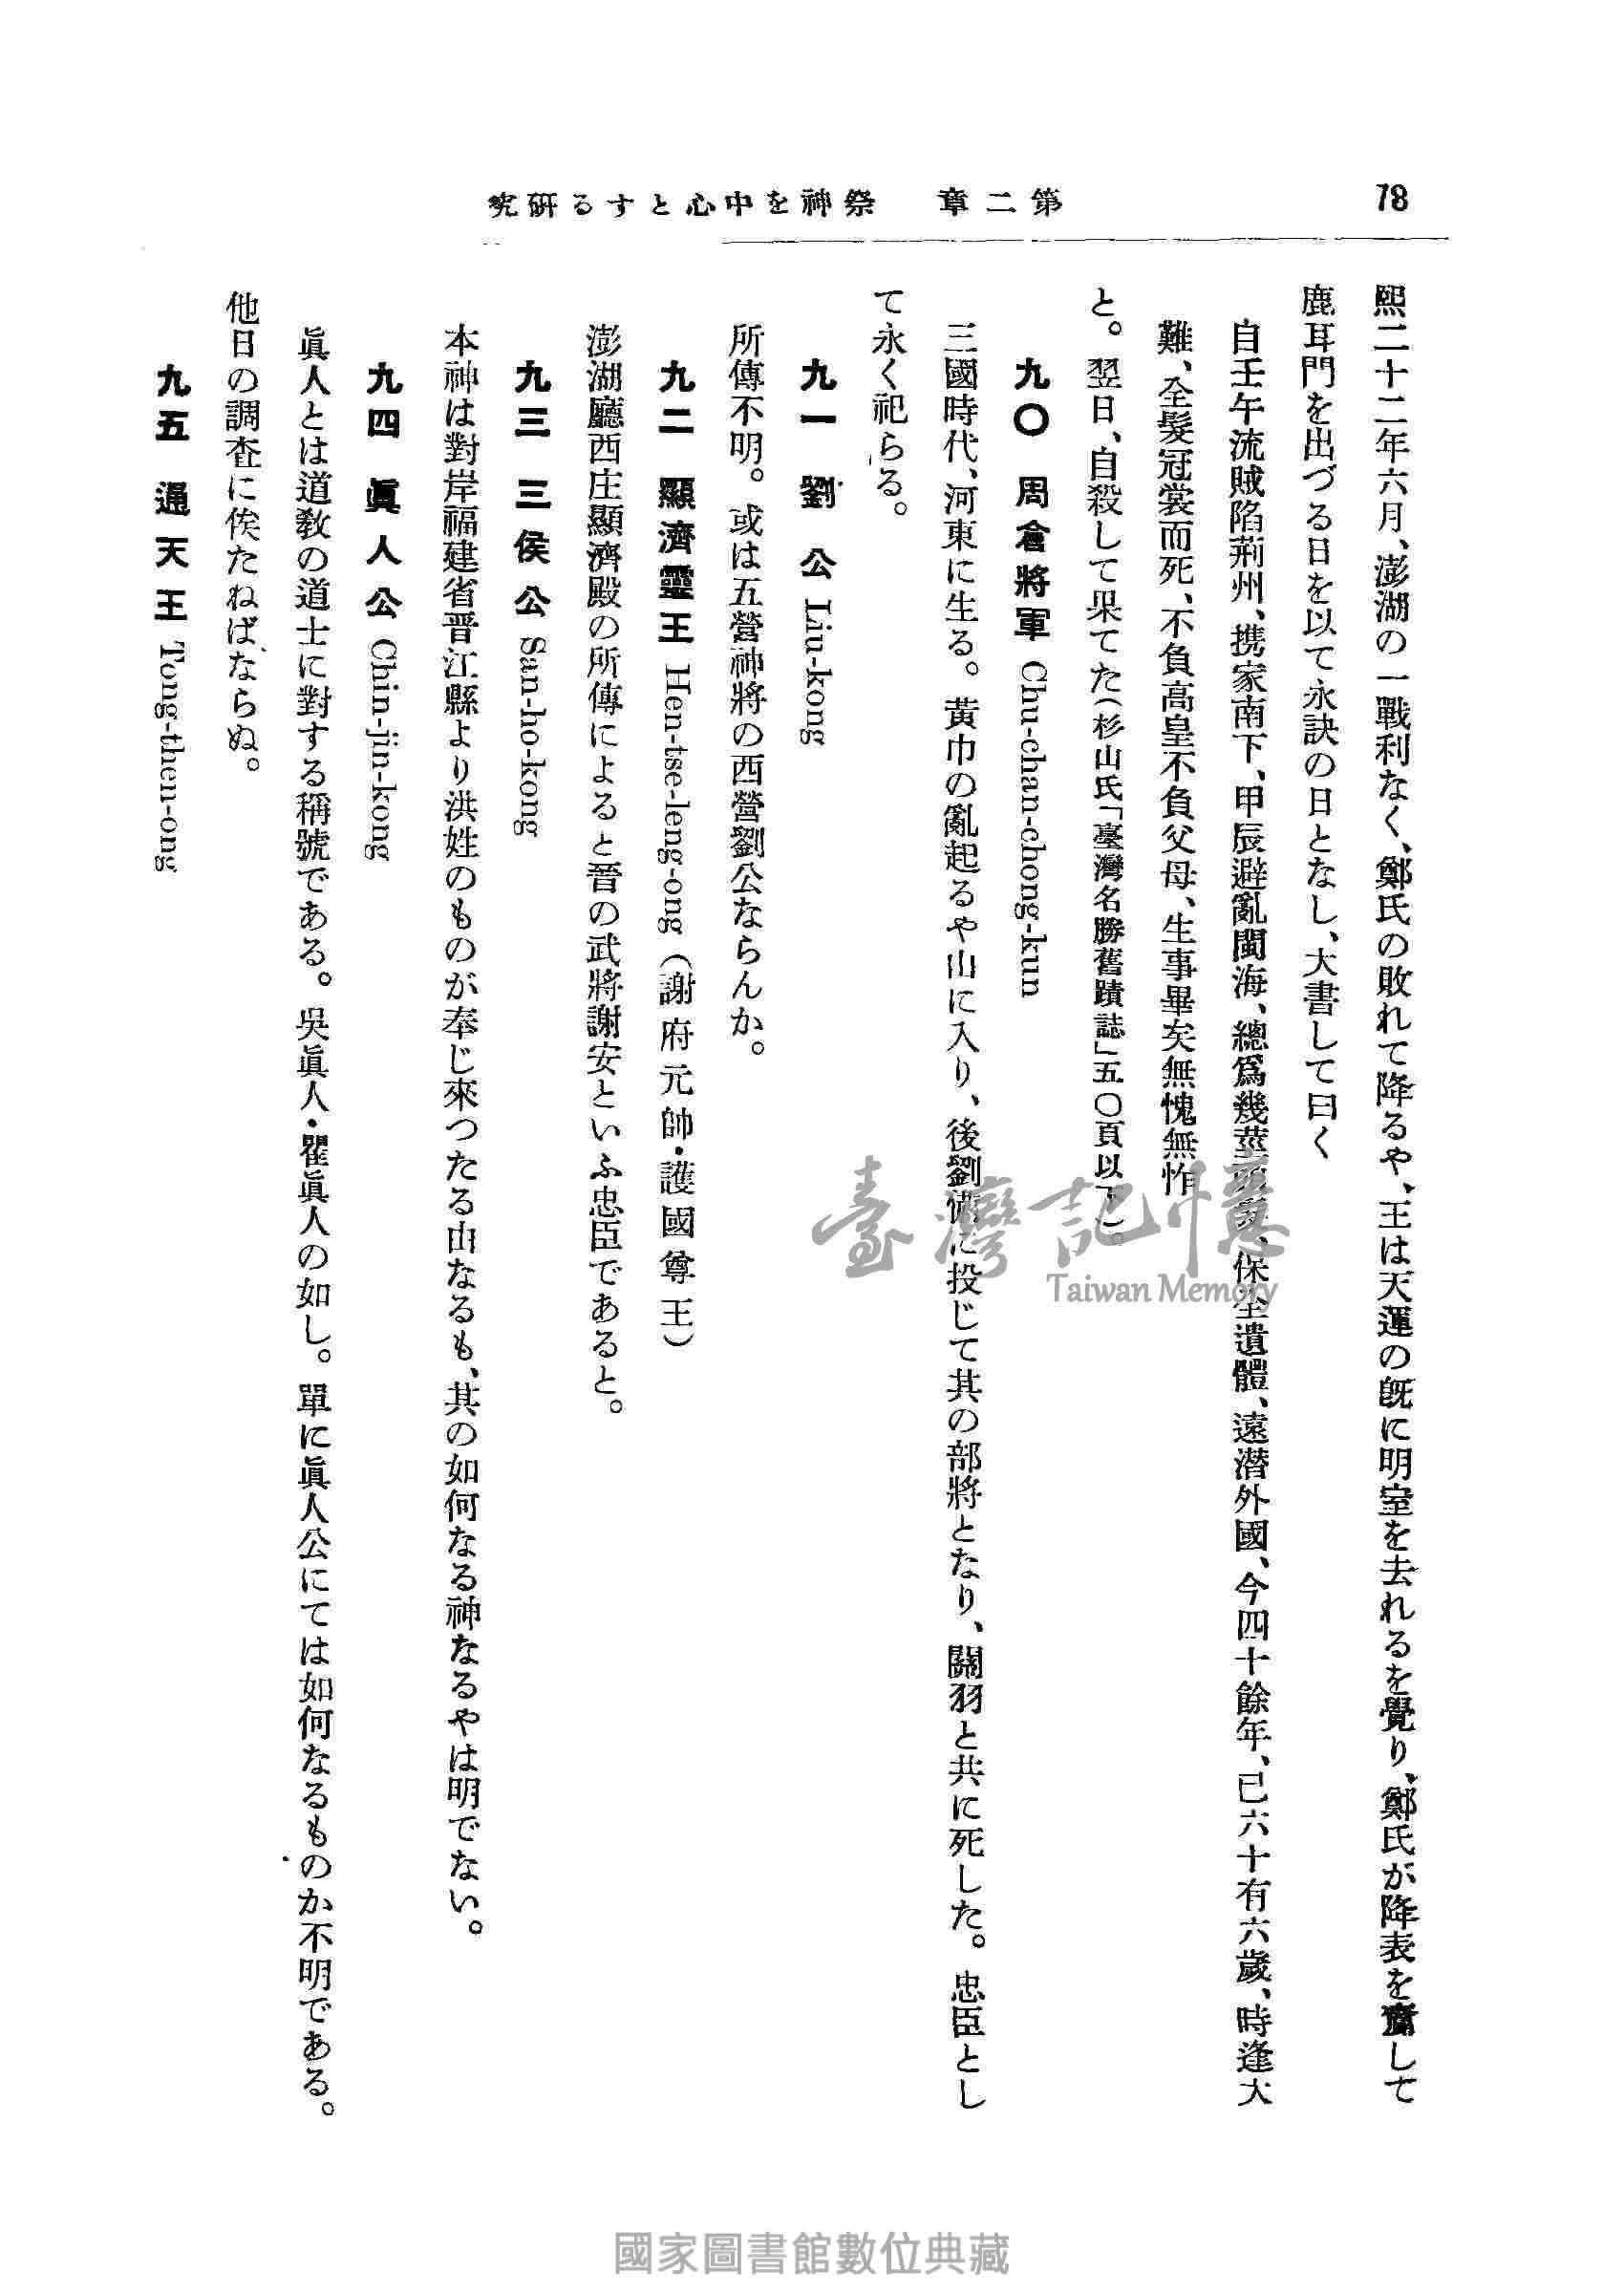 78
第二章 祭神を中心とする研究
熙二十二年六月、澎湖の一戰利なく、鄭氏の敗れて降るや、王は天運の旣に明室を去れるを覺り、鄭氏が降表を齎して
鹿耳門を出づる日を以て永訣の日となし、大書して曰く
自壬午流賊陷荊州、携家南下、甲辰避亂閩海、總爲幾莖頭髮、保全遺體、遠潛外國、今四十餘年、已六十有六歲、時逢大
難、全髮冠裳而死、不負高皇不負父母、生事畢矣無愧無怍
と。翌日、自殺して果てた(杉山氏「臺灣名勝舊蹟誌」五〇頁以下)。
九〇 周倉將軍 Chu-chan-chong-kun
三國時代、河東に生る。黃巾の亂起るや山に入り、後劉備に投じて其の部將となり、關羽と共に死した。忠臣とし
て永く祀らる。
九一 劉公 Liu-kong
所傳不明。或は五營神將の西營劉公ならんか。
九二 顯濟靈王 Hen-tse-leng-ong (謝府元帥・護國尊王)
澎湖廳西庄顯濟殿の所傳によると晉の武將謝安といふ忠臣であると。
九三 三侯公 San-ho-kong
本神は對岸福建省晋江縣より洪姓のものが奉じ來つたる由なるも、其の如何なる神なるやは明でない。
九四 眞人公 Chin-jin-kong
眞人とは道敎の道士に對する稱號である。吳眞人・瞿眞人の如し。單に眞人公にては如何なるものか不明である。
他日の調査に俟たねばならぬ。
九五 通天王 Tong-then-ong
臺灣記憶
Taiwan Memory
國家圖書館數位典藏